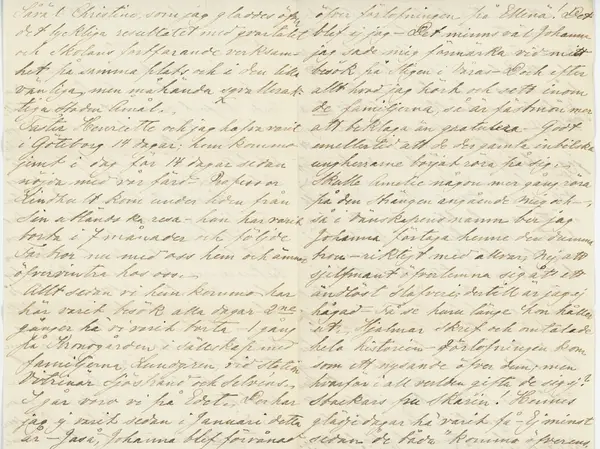 Kära Christine, som jag gladdes öfver
det lyckliga resultatet med
och Skolans fortfarande verksam-
het på samma plats och i den lilla
vänliga, men måhända
tiga staden Åmål.
Faster Henriette och jag hafva varit
i Göteborg 14 dagar; hem kommo
just i dag för 14 dagar sedan
nöjda med vår färd. Professor
Lindhult kom under tiden från
Sin utländska resa - han har varit
borta i 7 månader och följde
nu med oss hem och ännu
öfvervintra hos oss.
Allt sedan vi hem kommo har
här varit besök alla dagar 2ne
gånger ha vi varit borta - 1 gång
på Kronogården i sällskap med
familjerna Lundgren, vid
Sjöstrans och
I går voro vi på Edet. Der har
jag ej varit sedan i Januari detta
år - Jaså, Johanna blef förvånad
öfver förlofningen på Ellenä! Det
blef ej jag - Det minns väl Johanna
jag sade mig förmärka vid mitt
besök på Stigen i Våras - Och efter
allt hvad jag hört och sett inom
de familjerna, så är fästmön mer
att beklaga än gratulera - Godt
emellertid att de der gamla inbitska
ungherrarne börjat röra på sig.
Skulle Amelie någon mer gång röra
på den strängen angående mig och -
så i Vänskapens namn ber jag
Johanna förtaga henne den dumma
tron - riktigt med allvar, ty att
öfverlemna sig åt ett
ändlöst till är jag ej
hågad - Få se huru länge hon håller
ut. Hjalmar skref och omtalade
hela historien - Förlofningen kom
som ett nysande öfver dem, men
hvarför i all verlden gifta de sig ej?
Stackars fru Skarin! Hennes
glädjedagar ha varit få - Ej minst
sedan de döda komma öfverens